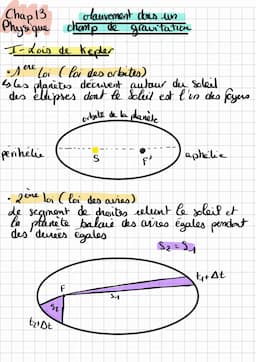 Chap 13 mouvement dans un
Physique champ de gravitation
I - Lois de Kepler
• 1ère Loi (loi des orbites)
↳ Les planètes décrivent autour du Soleil
des ellipses dont le Soleil est l'un des foyers
orbite de la planète
périhélie
S
F'
aphélie
• 2ème loi (loi des aires)
Le segment de droites relient le soleil et
la planète balaie des aires égales pendant
des durées égales
S2 = S1
F
t1+Δt
S1
S2
t2+Δt